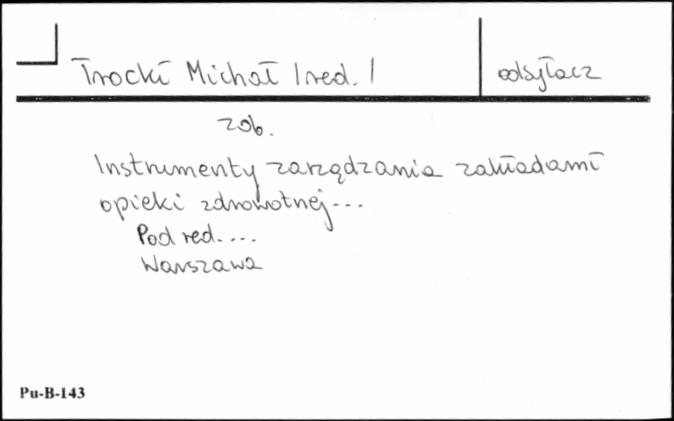 Trocki Michał /red./
odsyłacz
zob.
Instrumenty zarządzania zakładami
opieki zdrowotnej...
Pod red....
Warszawa
Pu-B-143